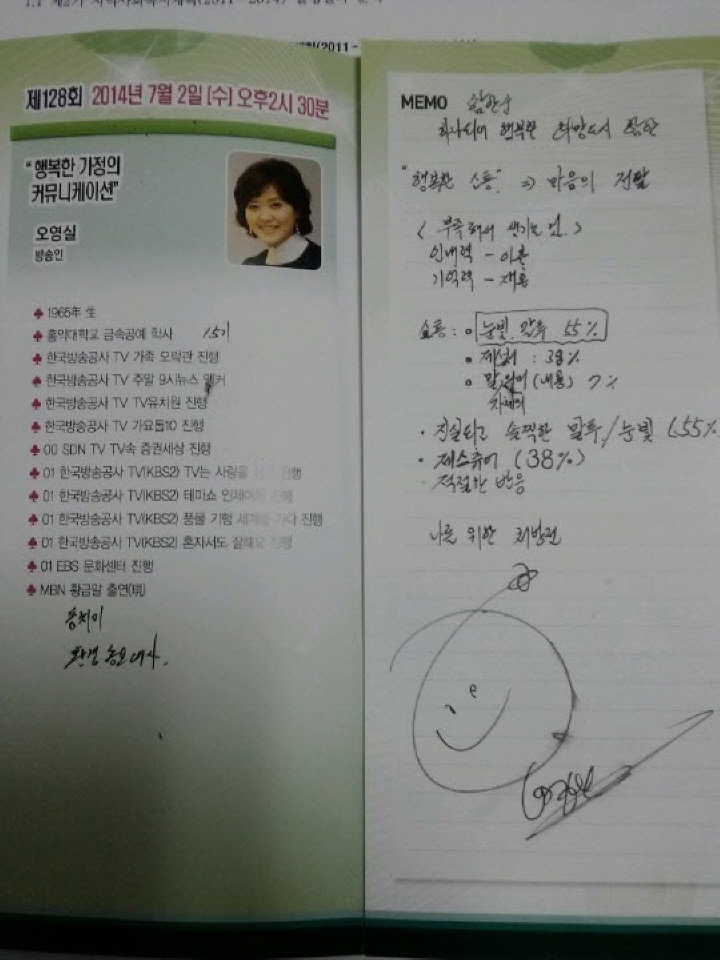 제128회 2014년 7월 2일 (수) 오후2시 30분
"행복한 가정의
커뮤니케이션"
오영실
방송인
♣ 1965年 生
♣ 홍익대학교 금속공예 학사 15기
♣ 한국방송공사 TV 가족 오락관 진행
♣ 한국방송공사 TV 주말 9시뉴스 앵커
♣ 한국방송공사 TV TV유치원 진행
♣ 한국방송공사 TV 가요톱10 진행
♣ 00 SDN TV TV속 증권세상 진행
♣ 01 한국방송공사 TV(KBS2) TV는 사랑을 진행
♣ 01 한국방송공사 TV(KBS2) 테마쇼 진행
♣ 01 한국방송공사 TV(KBS2) 풍물 기행 세계를 가다 진행
♣ 01 한국방송공사 TV(KBS2) 혼자서도 잘해요 진행
♣ 01 EBS 문화센터 진행
♣ MBN 황금알 출연(現)
환경 홍보대사.
MEMO
행복한 희망도시
"행복한 소통" => 마음의 전달
< 부족해서 생기는 일 >
인내력 - 이혼
기억력 - 재혼
소통 : 눈빛, 말투 55%
제스처 : 38%
말 언어 (내용) 7%
자체의
· 진실되고 솔직한 말투/눈빛 (55%
· 제스츄어 (38%)
· 적절한 반응
나를 위한 처방전